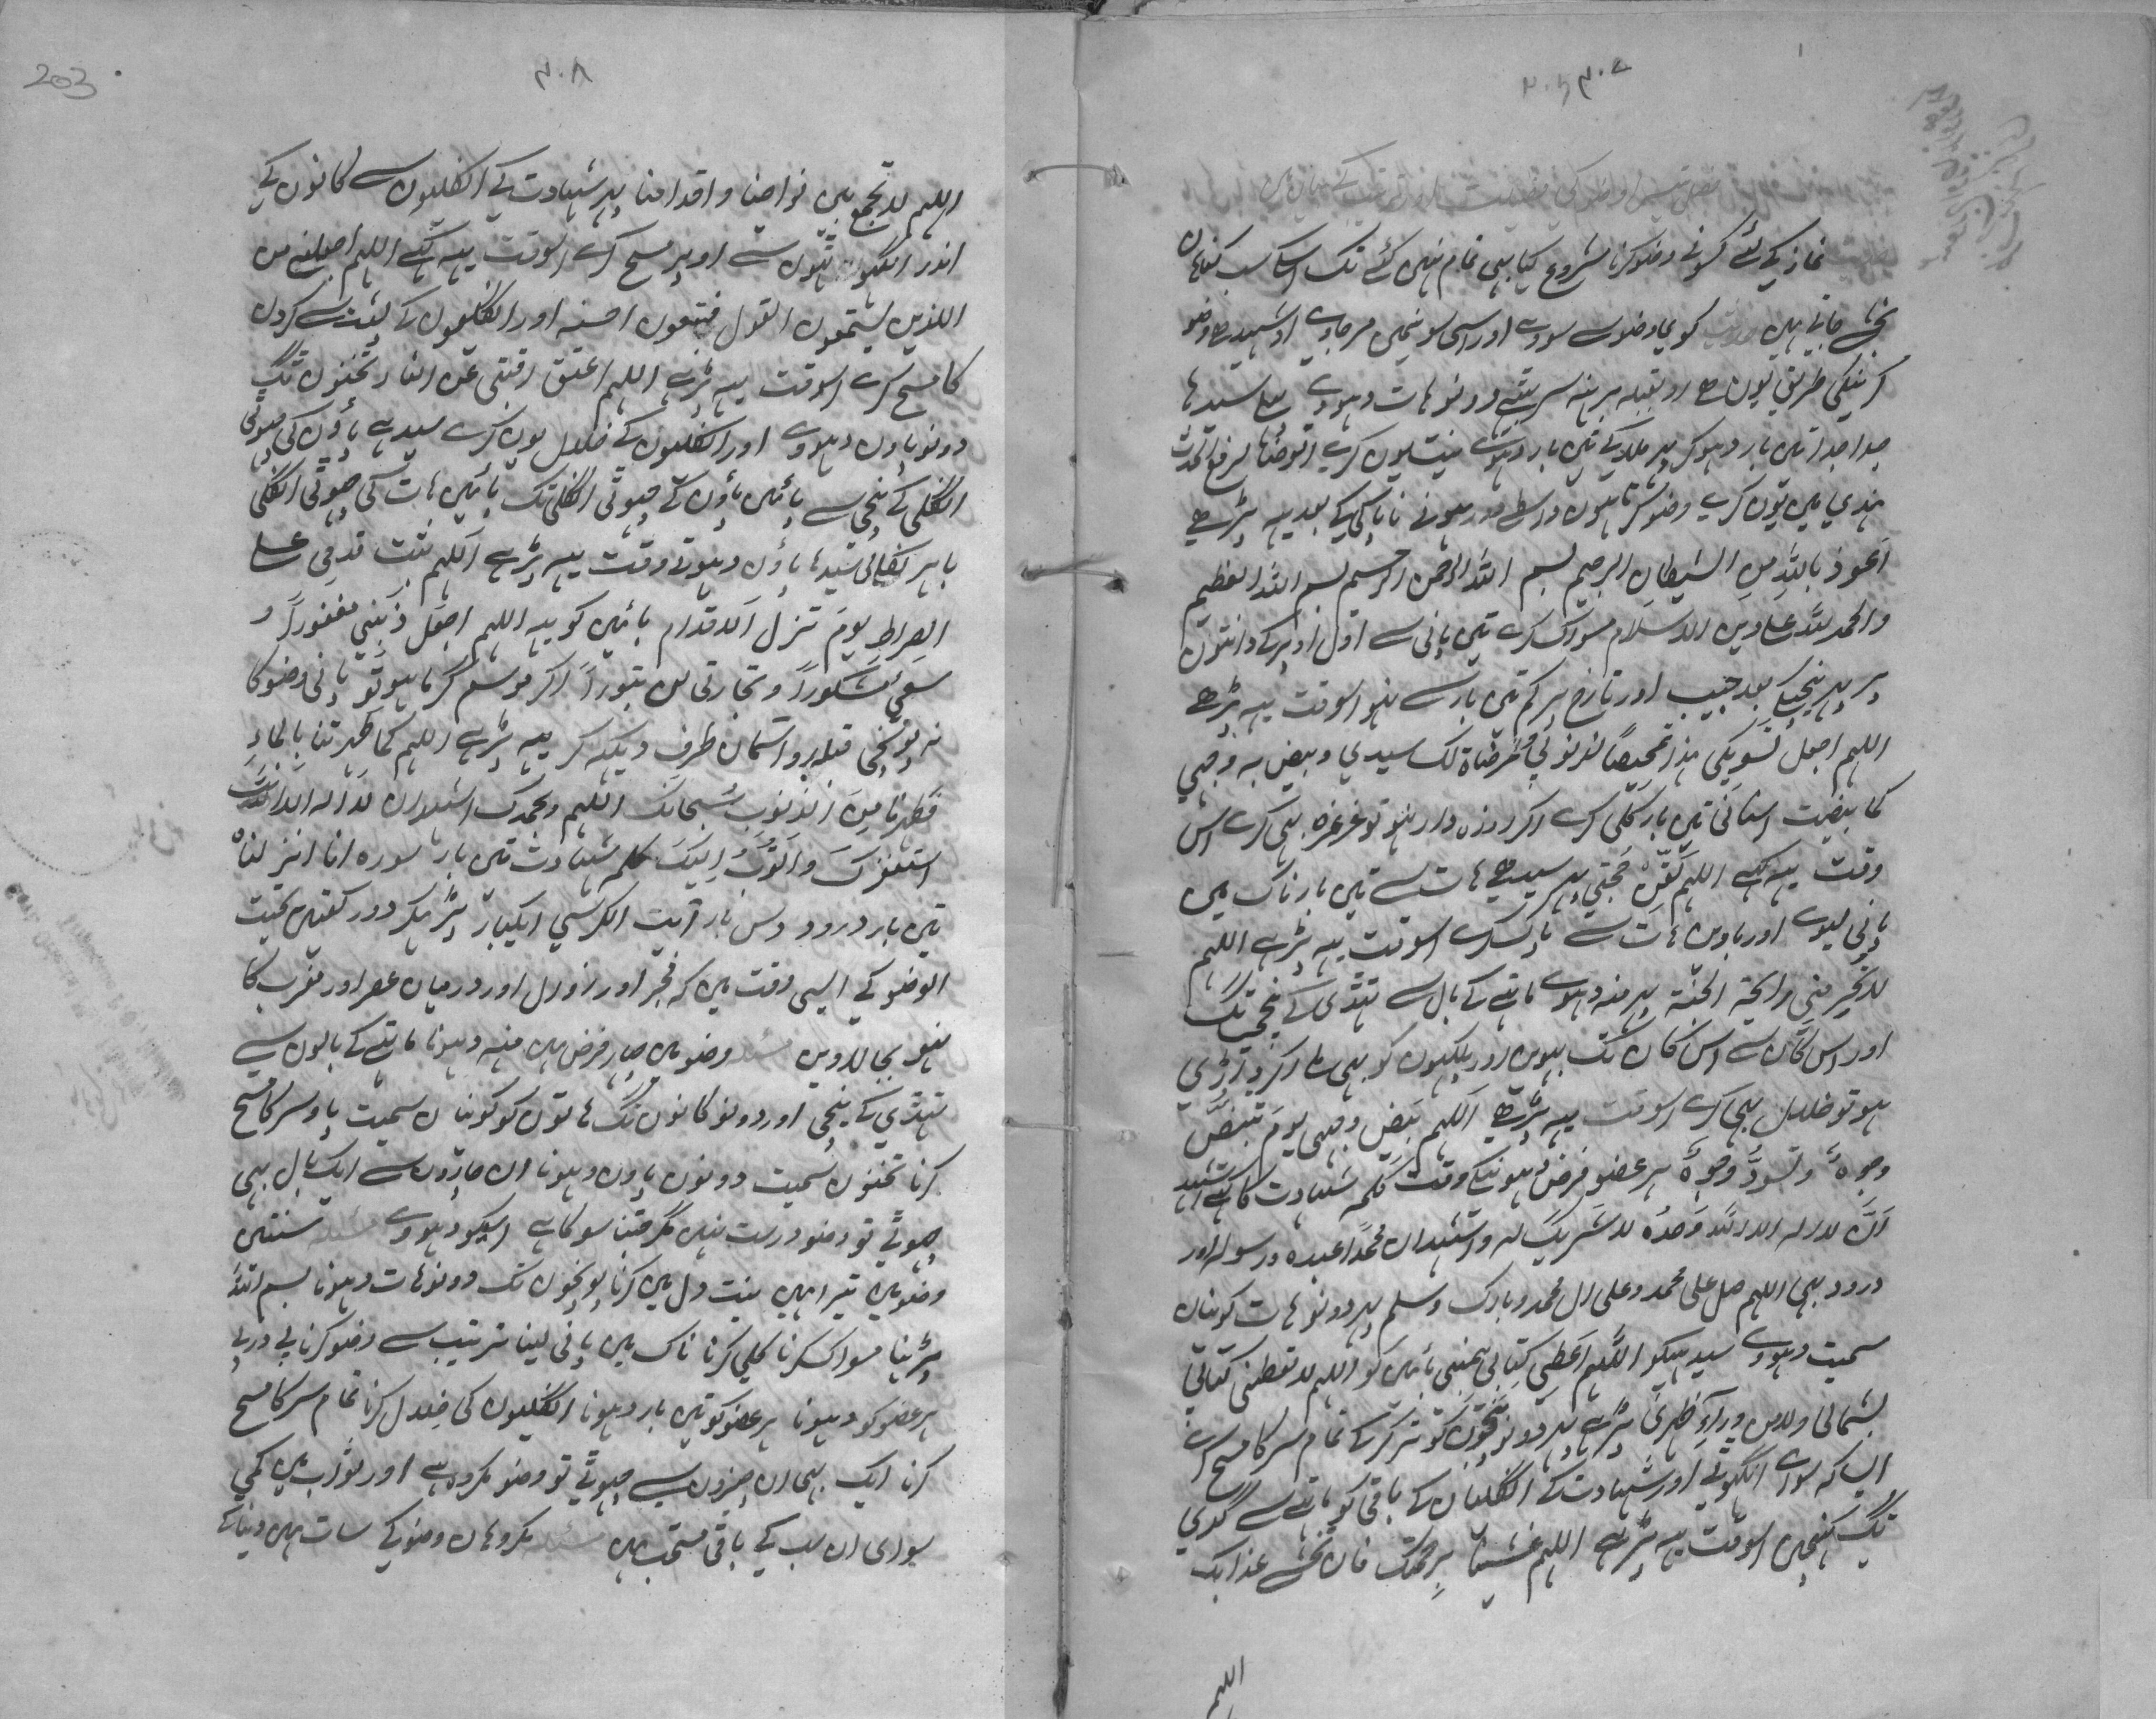 ۳۰۷
نماز کے لئے کسونے وضو کرنا شروع کیا بہی تمام نہیں کئے تک اسکا سب کناہان
بخشے جاتے ہیں کوی با وضو سے سووے اور اسی سونیمیں مرجاوے او شہید ہے وضو
کرنیکی طریق یوں ہے رو بقبلہ برہنہ سر بیٹھے دونو ہات دہووے پہلے سیدہا
جدا جدا تین بار دہوکر پہر ملاکے تین بار دہوتے نیت یوں کرے اتوضأ لرفع الحدث
ہندی میں یوں کرے وضو کرتا ہوں واسطے دور ہونے ناپاکی کے بعد یہہ پڑھے
اعوذ باللہ من الشیطان الرجیم بسم اللہ الرحمن الرحیم بسم اللہ العظیم
والحمد للہ علی دین الاسلام مسواک کرے تین پانی سے اول اوپر کے دانتوں
پر پہر نیچے بعد جیب اور تارخ پر کم تین بار سے نہو اسوقت یہہ پڑھے
اللہم اجعل تسویکی ہذا تمحیصا لذنوبی و مرضاۃ لک سیدی و بیض بہ وجہی
کما بیضت اسنانی تین بار کلی کرے اکر روزہ دار نہو تو غرغرہ بہی کرے اس
وقت یہہ کہے اللہم لقن حجتی پہر سیدھے ہات سے تین بار ناک میں
پانی لیوے اور باویں ہات سے پاک کرے اسوقت یہہ پڑے اللہم
لا تحرمنی رائحۃ الجنۃ پہر منہ دہووے ماتھے کے بال سے تہڈی کے نیچے تک
اور اس کان سے اس کان تک بہویں اور پلکہوں کو بہی ملے اکر داڑی
ہو تو خلال بہی کرے اسوقت یہہ پڑھے اللہم بیض وجہی یوم تبیض
وجوہ و تسود وجوہ ہر عضو فرض دہونیکے وقت کلمہ شہادت کا کہے اشہد
ان لا الہ الا اللہ وحدہ لا شریک لہ و اشہد ان محمدا عبدہ و رسولہ اور
درود بہی اللہم صل علی محمد و علی ال محمد و بارک و سلم پہر دونو ہات کونیان
سمیت دہووے سیدہیکو اللہم اعطنی کتابی بیمینی بائیں کو اللہم لا تعطنی کتابی
بشمالی ولا من ورآء ظہری پڑے پہر دونو پنجوں کو تر کرکے تمام سر کا مسح کرے
ایسا کہ سواے انگوٹہے اور شہادت کے انگلیان کے باقی کو ماتھے سے گدی
تک کہنچیں اسوقت یہہ پڑھے اللہم غشینا برحمتک فان نخشی عذابک
اللہم
۳۰۸
203
اللہم لا تجمع بین نواصنا و اقدامنا پہر شہادت کے انگلیوں سے کانوں کے
اندر انگوٹہوں سے اوپر مسح کرے اسوقت یہہ کہے اللہم اجعلنی من
الذین یستمعون القول فیتبعون احسنہ اور انگلیوں کے پیٹ سے گردن
کا مسح کرے اسوقت یہہ پڑے اللہم اعتق رقبتی عن النار ٹخنوں تک
دونو پاوں دہووے اور انگلیوں کے خلال یوں کرے سیدہے پاؤں کی چہوٹی
انگلی کے نیچے سے بائیں پاؤں کے چہوٹی انگلی تک بائیں ہات کی چہوٹی انگلی
باہر نکالی سیدہا پاؤں دہوتے وقت یہہ پڑہے اللہم ثبت قدمی علی
الصراط یوم تزل الاقدام بائیں کو یہہ اللہم اجعل ذنبی مغفورا و
سعی مشکورا و تجارتی لن تبورا اکر موسم کرما ہو تو پانی وضو کا
نہ پونچی قبلہ رو آسمان طرف دیکہہ کر یہہ پڑے اللہم کما طہرتنا بالماء
فطہرنا من الذنوب سبحانک اللہم وبحمدک اشہد ان لا الہ الا انت
استغفرک و اتوب الیک کلمہ شہادت تین بار سورہ انا انزلناہ
تین بار درود دس بار آیت الکرسی ایکبار پڑہکر دو رکعتیں تحیت
الوضو کے ایسی وقت میں کہ فجر اور زوال اور درمیان عصر اور مغرب کا
نہو بجا لاویں مسئلہ وضو میں چار فرض ہیں منہ دہونا ماتھے کے بالوں سے
تہڈی کے نیچے اور دونو کانوں تک ہاتوں کو کونیان سمیت پاو سر کا مسح
کرنا ٹخنوں سمیت دونوں پاوں دہونا ان چاروں سے ایک بال بہی
چہوٹے تو وضو درست نہیں مگر جتنا سوکا ہے اسیکو دہووے مسئلہ سنتیں
وضو میں تیرا ہیں نیت دل میں کرنا پونچوں تک دونو ہات دہونا بسم اللہ
پڑہنا مسواک کرنا کلی کرنا ناک میں پانی لینا ترتیب سے وضو کرنا پی در پی
ہر عضو کو دہونا ہر عضو کو تین بار دہونا انگلیوں کی خلال کرنا تمام سر کا مسح
کرنا ایک بہی ان چیزوں سے چہوٹے تو وضو مکروہ ہے اور ثواب میں کمی
سوای ان سب کے باقی مستحب ہیں مسئلہ مکروہان وضو کے سات ہیں دنیا کے